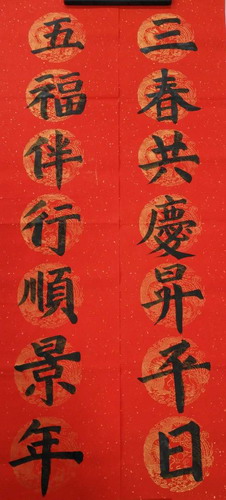 三春共慶昇平日
五福伴行順景年